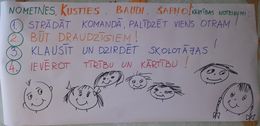 NOMETNES "KUSTIES. BAUDI. SAPŅO!"
1. STRĀDĀT KOMANDĀ, PALĪDZĒT VIENS OTRAM!
2. BŪT DRAUDZĪGIEM!
3. KLAUSĪT UN DZIRDĒT SKOLOTĀJAS!
4. IEVĒROT TĪRĪBU UN KĀRTĪBU!